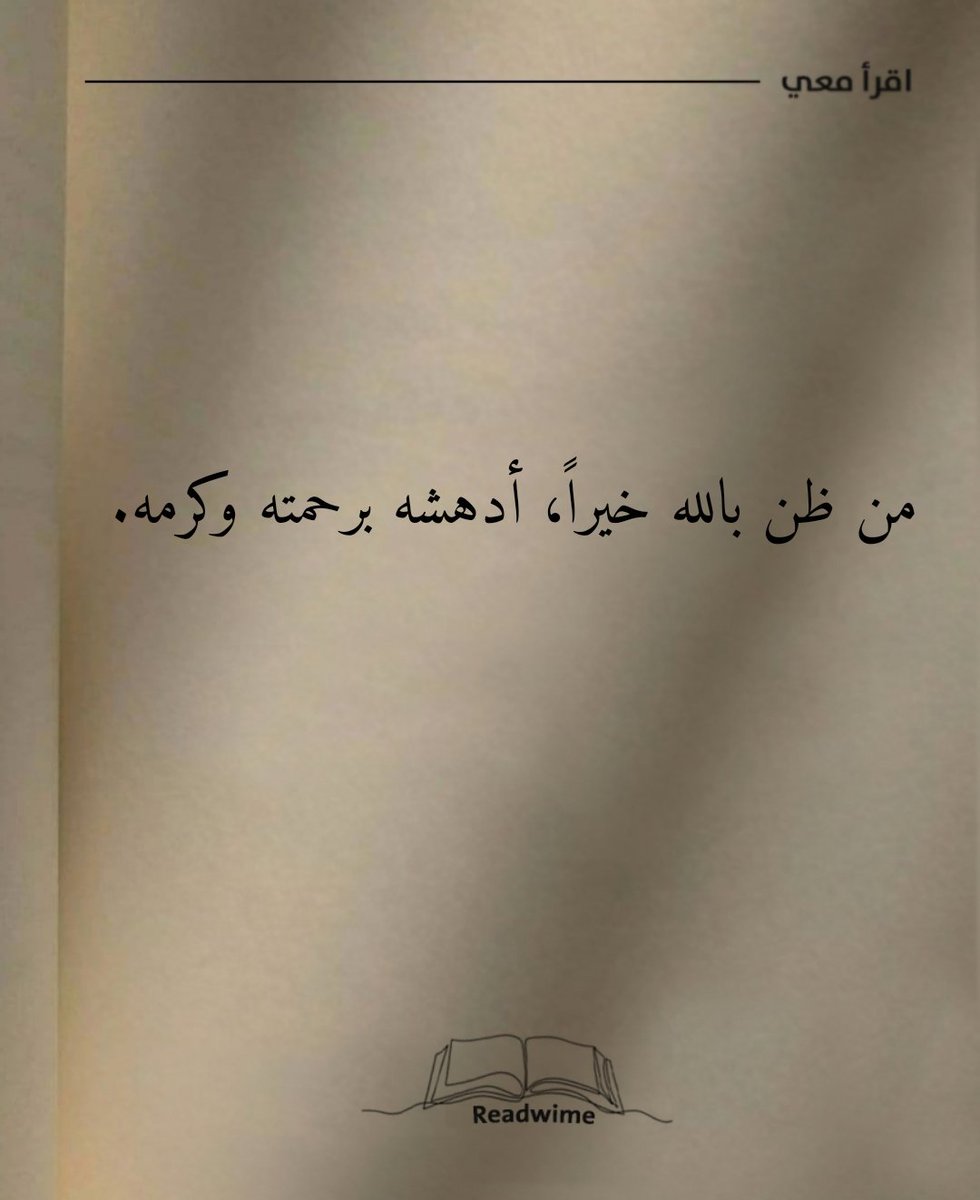 اقرأ معي
من ظن بالله خيراً، أدهشه برحمته وكرمه.
Readwime